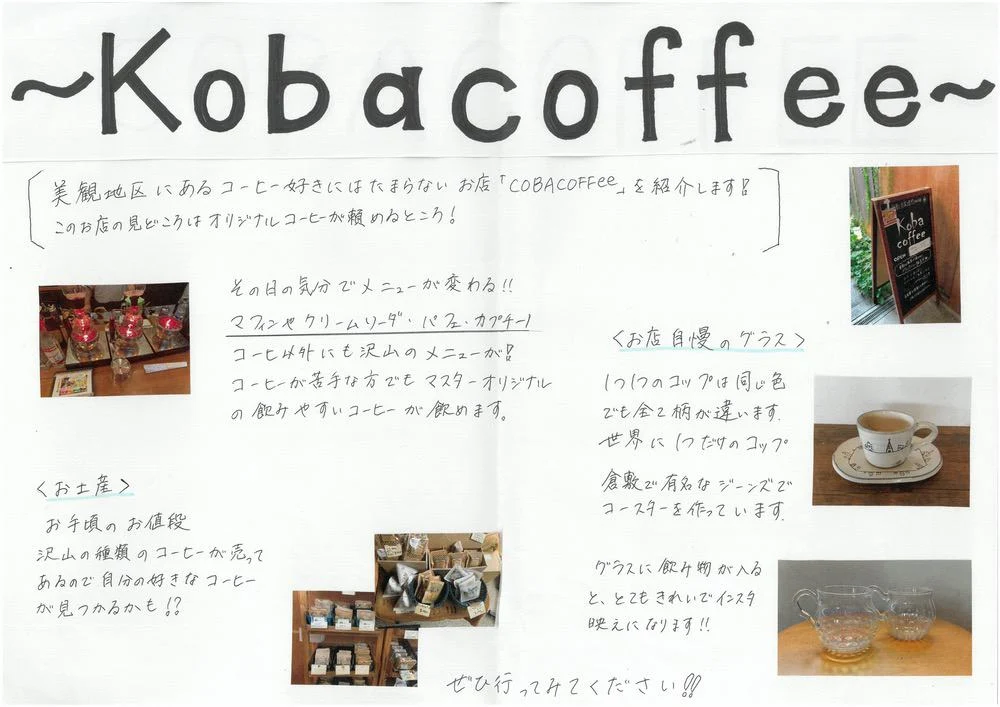 ~Kobacoffee~
美観地区にあるコーヒー好きにはたまらないお店「COBACOFFee」を紹介します!!
このお店の見どころはオリジナルコーヒーが頼めるところ!
Koba
coffee
OPEN
その日の気分でメニューが変わる!!
マフィンやクリームソーダ・パフェ・カプチーノ
コーヒ以外にも沢山のメニューが!!
コーヒーが苦手な方でもマスターオリジナル
の飲みやすいコーヒーが飲めます。
<お店自慢のグラス>
1つ1つのコップは同じ色
でも全て柄が違います.
世界に1つだけのコップ
倉敷で有名なジーンズで
コースターを作っています.
<お土産>
お手頃のお値段
沢山の種類のコーヒーが売って
あるので自分の好きなコーヒー
が見つかるかも!?
グラスに飲み物が入る
と、とてもきれいでインスタ
映えになります!!
ぜひ行ってみてください!!